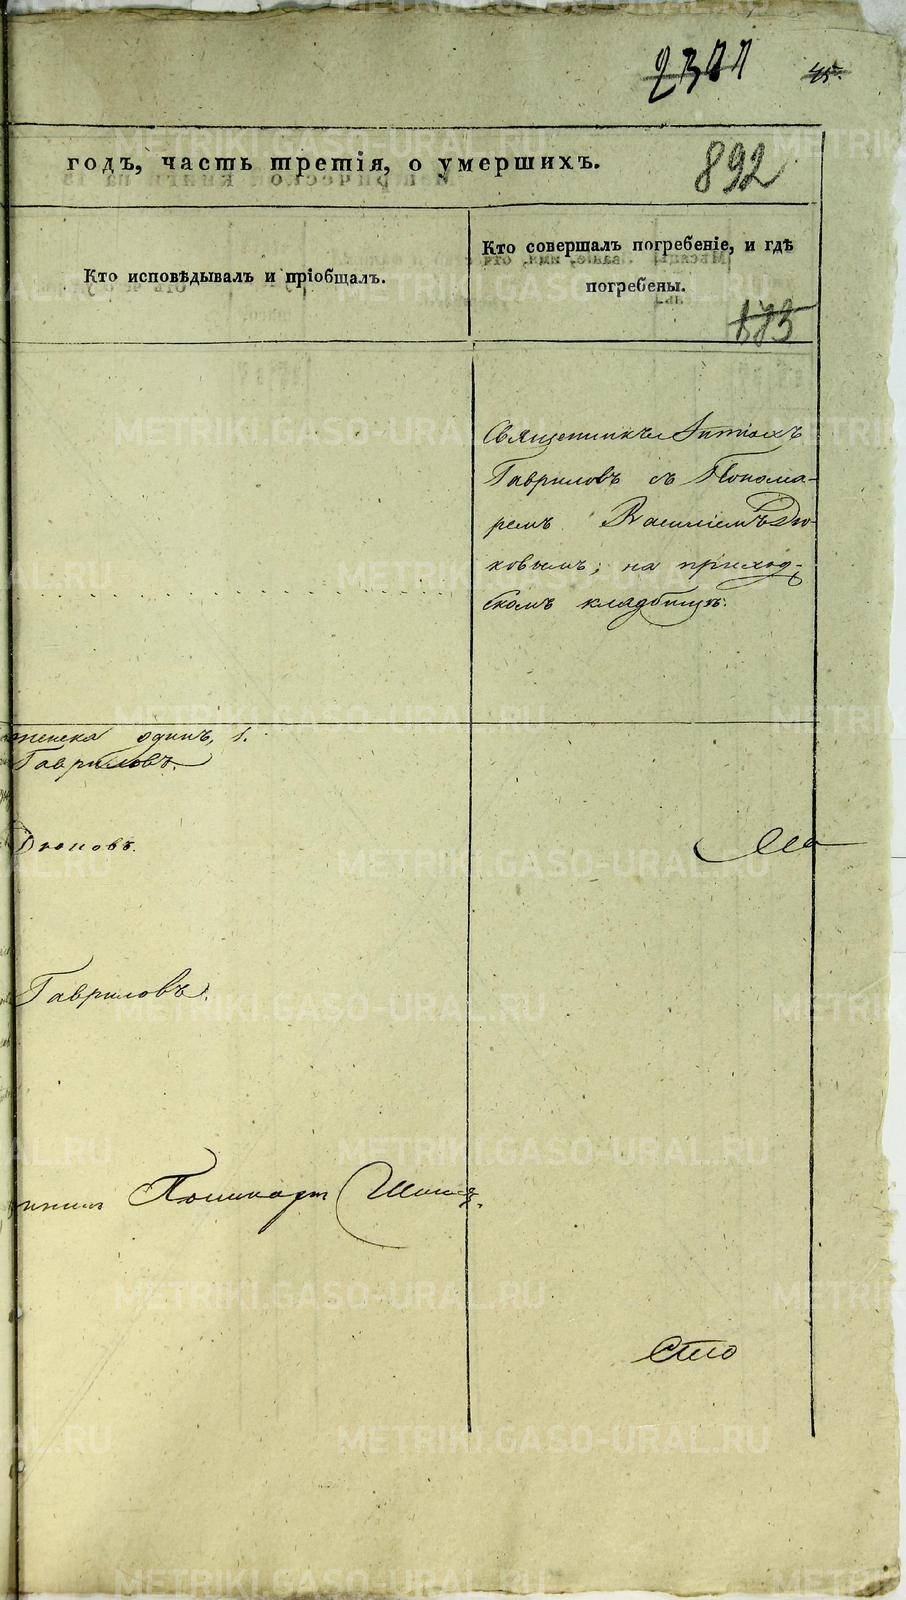 2377 45.
годъ, часть третія, о умершихъ.
892
Кто исповѣдывалъ и пріобщалъ.
Кто совершалъ погребеніе, и гдѣ
погребены.
893
Священникъ
Гавриловъ съ Понома-
ремъ Василіемъ Дю-
ковымъ; на приход-
скомъ кладбищѣ.
женска одинъ, 1.
Гавриловъ.
Дюковъ.
Гавриловъ.
Сто
METRIKI.GASO-URAL.RU